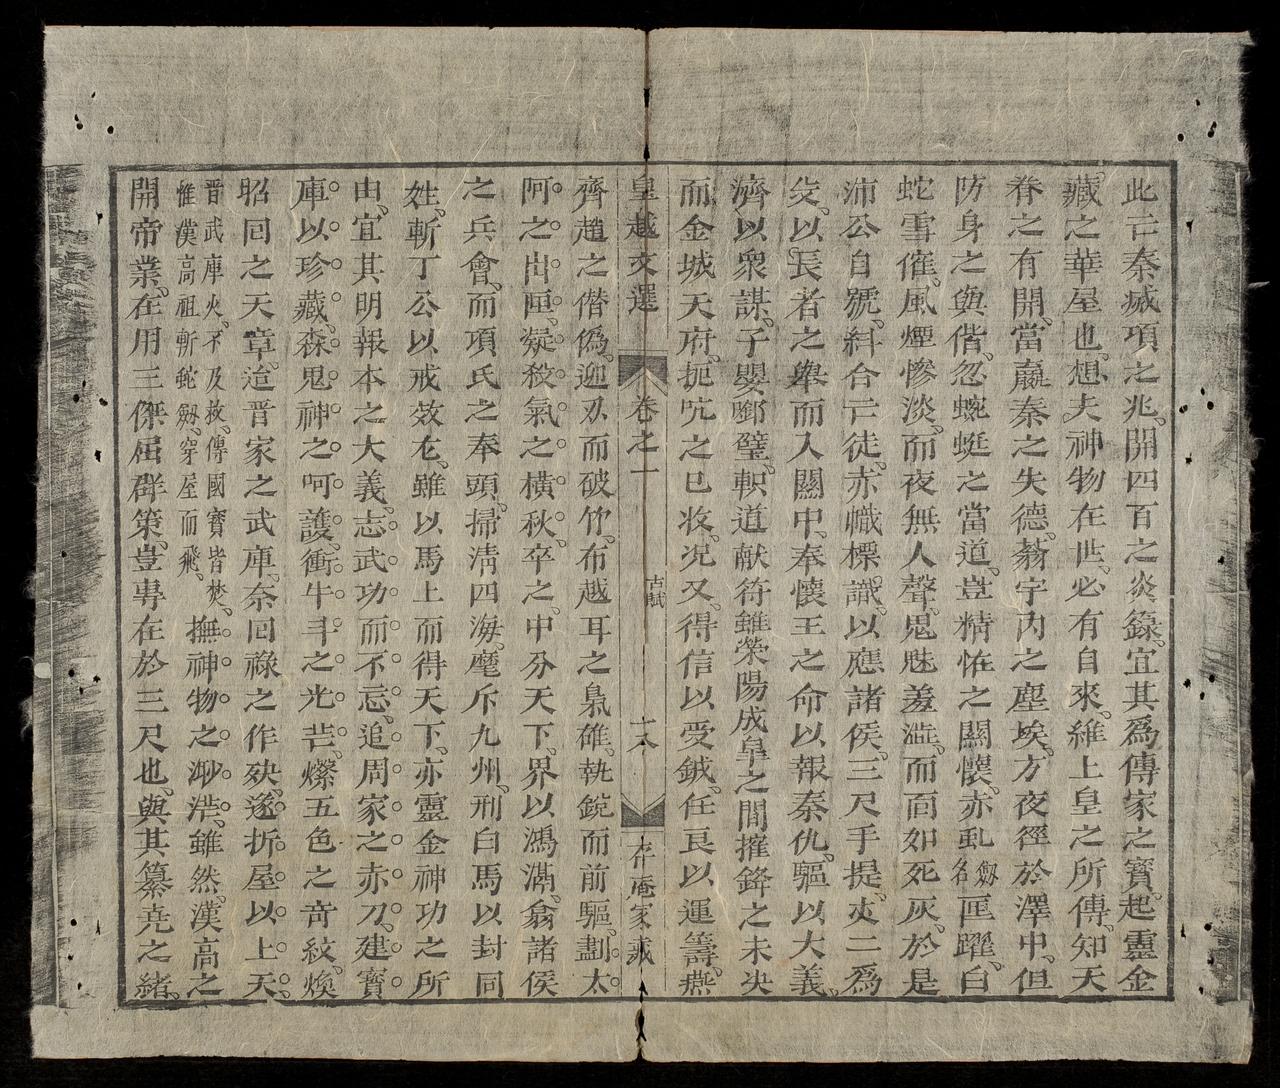 此亡秦滅項之兆。開四百之炎錄。宜其爲傳家之寶。起靈金
藏之華屋也。想夫神物在世。必有自來。維上皇之所傳。知天
眷之有開。當嬴秦之失德。蓊宇內之塵埃。方夜徑於澤中。但
防身之與偕。忽蜿蜒之當道。豈精恠之關懷。赤虬劔名匣躍。白
蛇雪催。風煙慘淡。而夜無人聲。鬼魅羞澁。而面如死灰。於是
沛公自號。糾合亡徒。赤幟標識。以應諸侯。三尺手提。丈二爲
殳。以長者之舉而入關中。奉懷王之命以報秦仇。驅以大義。
濟以衆謀。子嬰啣璧。軹道献符雖滎陽成皐之間摧鋒之未决
而金城天府。扼吭之已收。况又得信以受鉞。任良以運籌。燕
皇越文選
卷之一
古賦
十八
存庵家藏
齊趙之僭僞。迎刃而破竹。布越耳之梟雄。執銳而前驅。劃太
阿之出匣。凝殺氣之橫秋。卒之。中分天下。界以鴻溝。翕諸侯
之兵會。而項氏之奉頭。掃淸四海。麾斥九州。刑白馬以封同
姓。斬丁公以戒效尤。雖以馬上而得天下。亦靈金神功之所
由。宜其明報本之大義。志武功而不忘。追周家之赤刀。建寳
庫以珍藏。森鬼神之呵護。衝牛斗之光芒。爍五色之奇紋。煥
昭回之天章。迨晋家之武庫。奈回祿之作殃。遂折屋以上天。
晋武庫火。不及救。傳國寳皆焚。
惟漢高祖斬蛇劔。穿屋而飛。撫神物之渺茫。雖然。漢高之
開帝業。在用三傑屈群策。豈專在於三尺也。與其纂尭之緒。